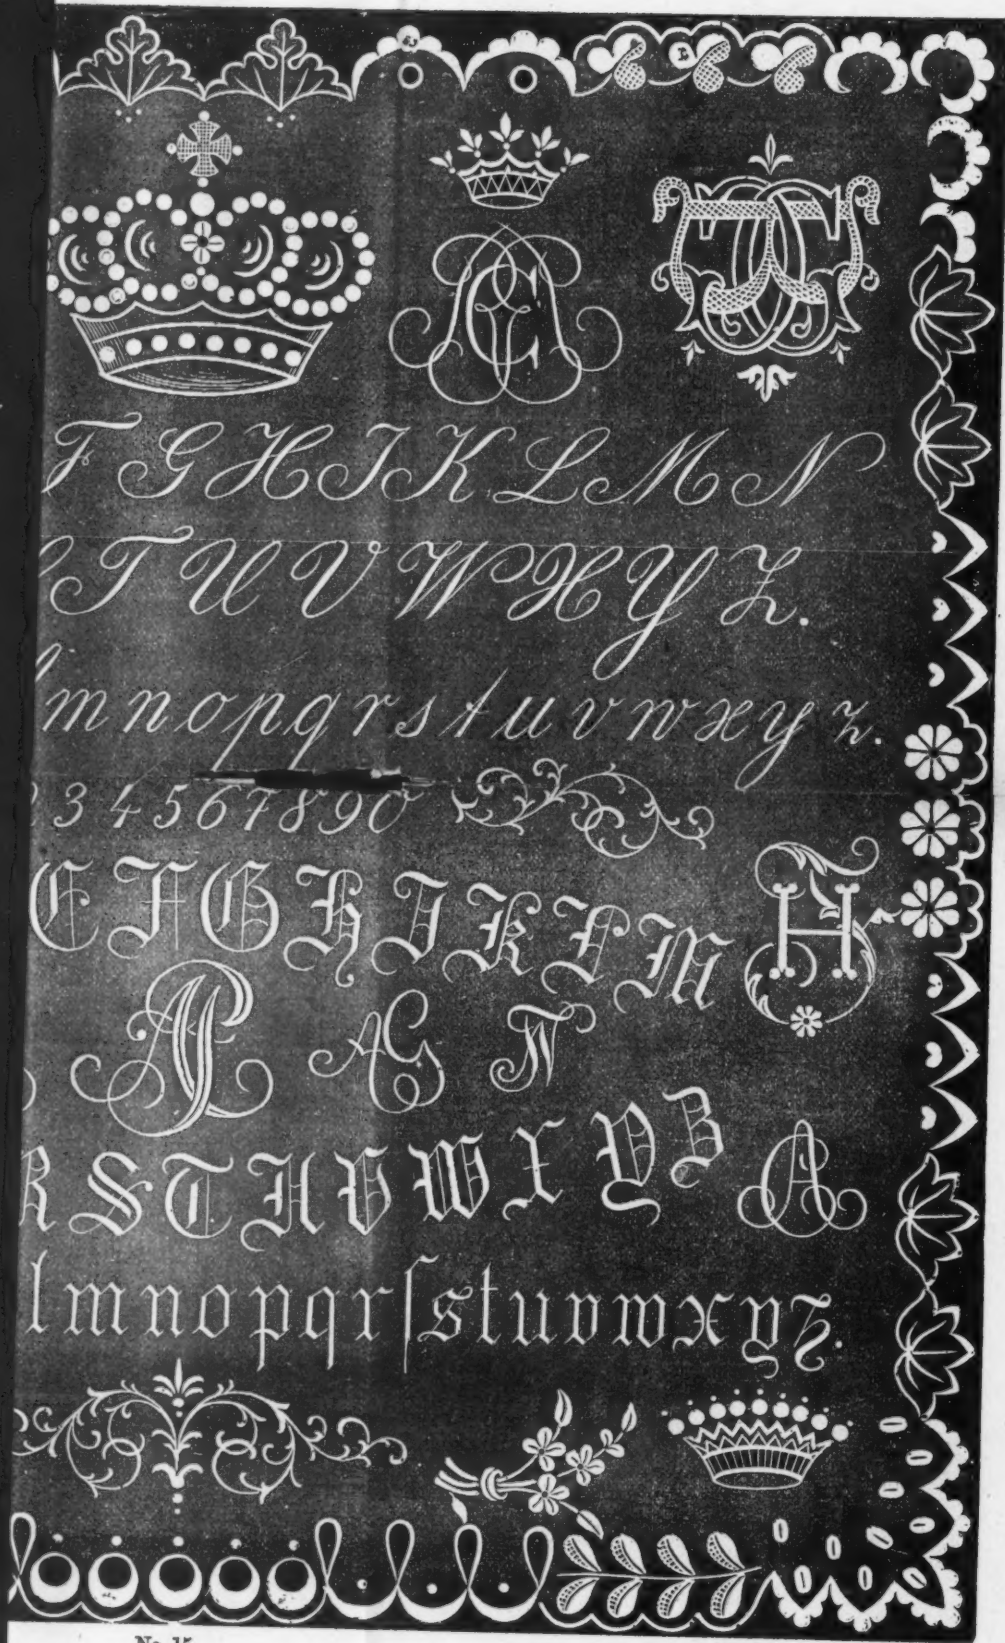 F G H I K L M N
T U V W X Y Z.
l m n o p q r s t u v w x y z.
3 4 5 6 7 8 9 0
E F G H I K L M
R S T U V W X Y Z
l m n o p q r ſ s t u v w x y z.